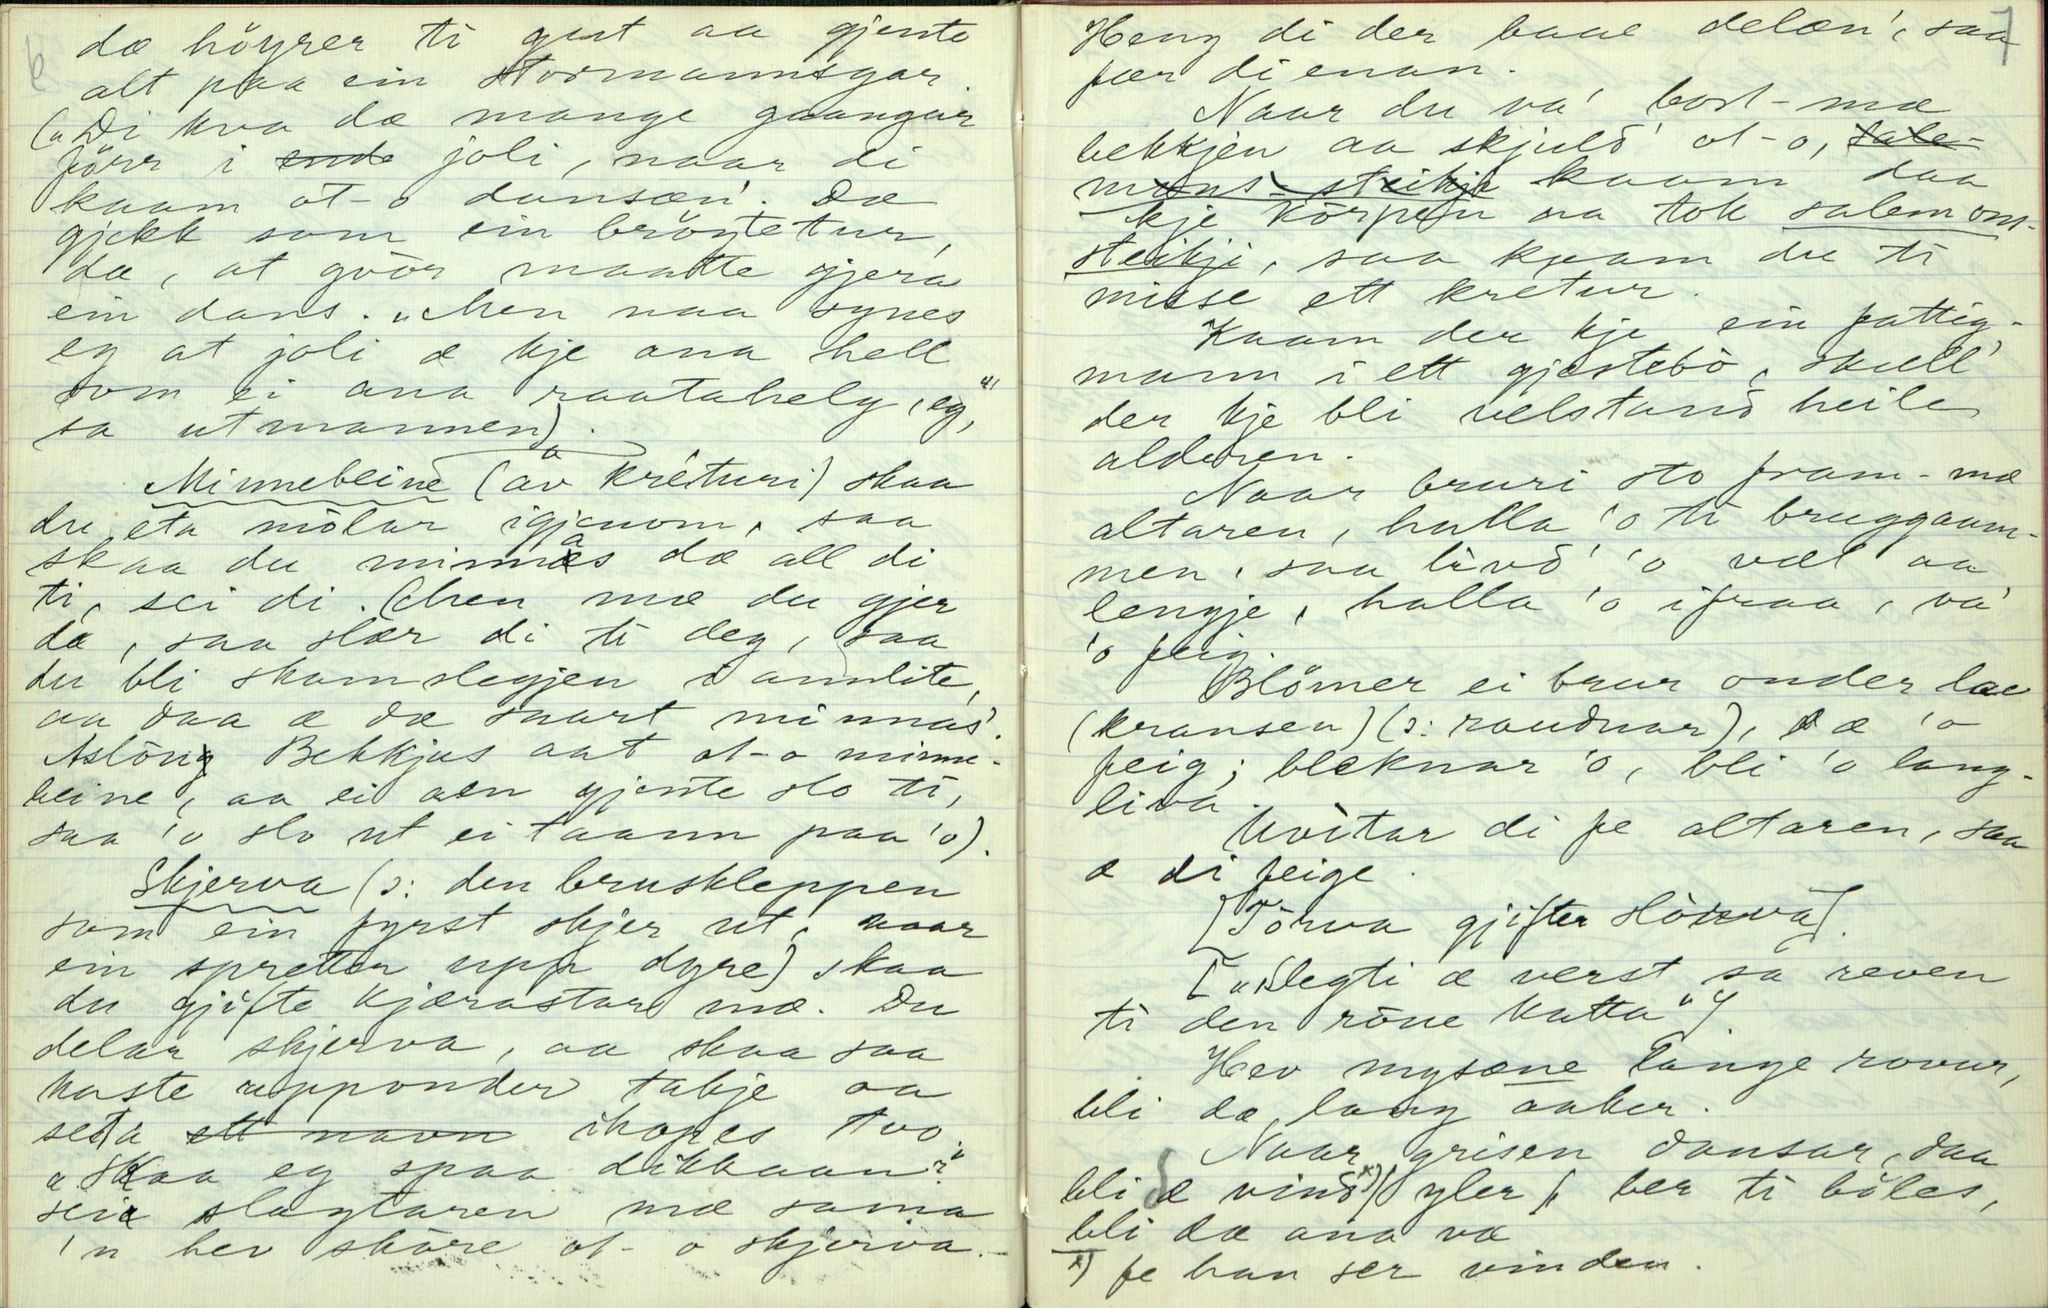 6
dæ höyrer ti gust aa gjente
alt paa ein stormannsgar.
(„Di hva dæ mange gaangar
förr i ende joli, naar di
kaam ot-o dansæn'. Dæ
gjekk som ein bröytetur,
dæ, at gvör maatte gjera
ein dans. „Men naa synes
eg at joli æ kje ana hell
som ei ana raatahelg, eg,"
sa utmannen).
Minnebeine (av krêturi) skaa
du eta mölar igjenom, saa
skaa du minnas dæ all di
ti, sei di. (Men mæ du gjer
dæ, saa slær di ti deg, saa
du bli skamslegjen i annlite,
aa daa æ dæ snart minnas'.
Aslöug Bekkjus aat ot-o minne-
beine, aa ei aen gjente slo ti,
saa 'o slo ut ei taann paa 'o).
Skjerva (ɔ: den bruskleppen
som ein fyrst skjer ut, naar
ein spretter upp dyre) skaa
du gjifte kjærastar mæ. Du
delar skjerva, aa skaa saa
kaste uppponder takje aa
seta ett navn ihopes tvo.
„Skaa eg spaa dikkaan?"
seie slagtaren mæ sama
'n hev sköre ot-o skjerva.-
7
Heng di der baae delæn', saa
fær di enan.
Naar du va' bort-mæ
bekkjen aa skjuld' ot-o, sale-
mons steikje kaam daa
kje körpen aa tok salemons-
steikji, saa kaam du ti
misse ett krêtur.
Kaam der kje ein fattig-
mann i ett gjestebö, skull'
der kje bli velstand heile
alderen.
Naar bruri sto fram-mæ
altaren, halla 'o ti bruggaam-
men, saa livd' 'o væl aa
lengje, halla 'o ifraa, va'
'o feig.
Blömer ei brur onder lae
(kransen) (ɔ: raudnar), æ 'o
feig; bleknar 'o, bli 'o lang-
liva.
Kvitar di fe altaren, saa
æ di feige.
[Törva gjifter slörva].
[„Slegti æ verst sa reven
ti den röue katta"].
Hev mysæne lange rovur,
bli dæ lang aaker.
Naar grisen dansar, daa
bli æ vind x) yler, ber ti böles,
bli dæ ana væ
x) fe han ser vinden.